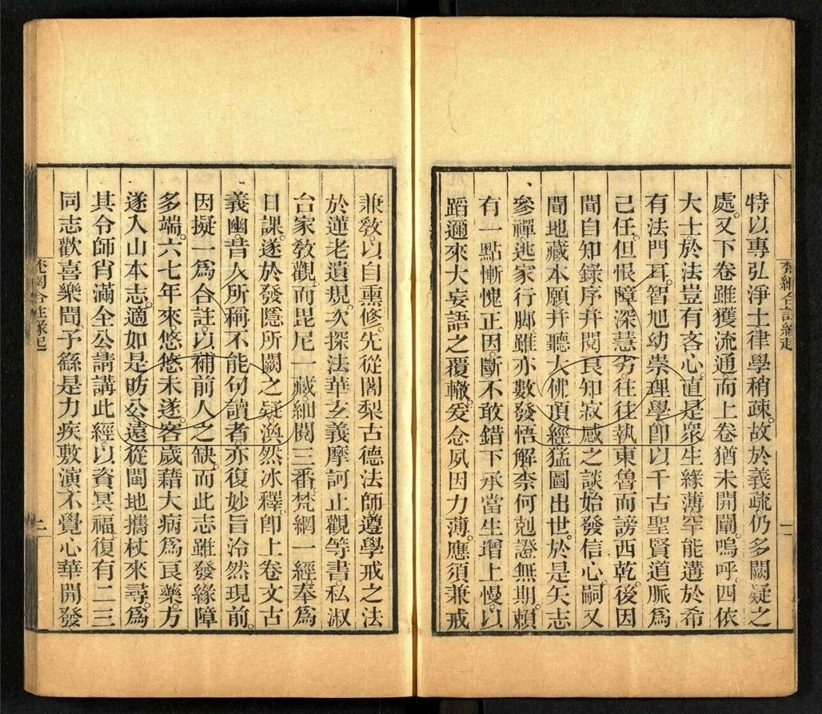 特以專弘淨土律學稍疎。故於義疏仍多闕疑之
處。又下卷雖獲流通而上卷猶未開闡。嗚呼。四依
大士於法豈有吝心。直是衆生緣薄罕能遘於希
有法門耳。智旭幼崇理學卽以千古聖賢道脈爲
己任。但恨障深慧劣往往執東魯而謗西乾。後因
閱自知錄序幷閱良知寂感之談始發信心。嗣又
聞地藏本願幷聽大佛頂經猛圖出世。於是矢志
參禪逃家行脚雖亦數發悟解柰何剋證無期。賴
有一點慚愧正因。斷不敢錯下承當生增上慢。以
蹈邇來大妄語之覆轍。爰念夙因力薄。應須兼戒
梵網合註緣起
一
兼敎。以自熏修。先從闍梨古德法師遵學戒之法
於蓮老遺規。次探法華玄義摩訶止觀等書私淑
台家敎觀。而毘尼一藏細閱三番梵網一經奉爲
日課。遂於發隱所闕之疑渙然冰釋。卽上卷文古
義幽昔人所稱不能句讀者亦復妙旨泠然現前。
因擬一爲合註。以補前人之缺。而此志雖發緣障
多端。六七年來。悠悠未遂。客歲藉大病爲良藥。方
遂入山本志。適如是昉公遠從閩地攜杖來尋。爲
其令師肖滿全公請講此經以資冥福。復有二三
同志歡喜樂聞。予繇是力疾敷演。不覺心華開發
梵網合註緣起
二